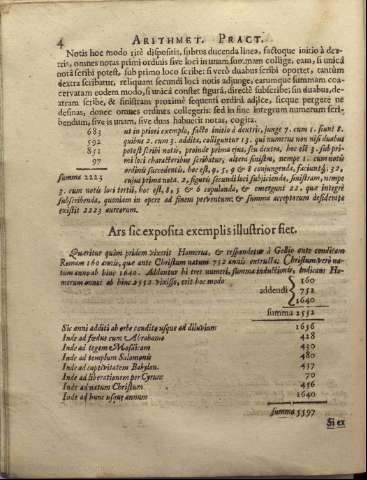 4 ARITHMET. PRACT.
Notis hoc modo ritè dispositis, subtus ducenda linea, factoque initio à dex-
tris, omnes notas primi ordinis sive loci in unam summam collige, eam, si unicâ
notâ scribi potest, sub primo loco scribe: si verò duabus scribi oportet, tantùm
dextra scribatur, reliquam secundi loci notis adjunge, earumque summam coa-
cervatam eodem modo, si unicâ constet figurâ, directè subscribe: sin duabus, dex-
tram scribe, & sinistram proximè sequenti ordini adjice, sicque pergere ne
desinas, donec omnes ordines collegeris: sed in fine integrum numerum scri-
bendum, sive is unam, sive duas habuerit notas, cogita.
683 ut in priori exemplo, facto initio à dextris, junge 7. cum 1. fiunt 8.
592 quibus 2. cum 3. addita, colliguntur 13. qui numerus non nisi duabus
851 potest scribi notis, proinde prima ejus, seu dextra, hoc est 3. sub pri-
97 mi loci characteribus scribatur, altera sinistra, nempe 1. cum notis
ordinis succedentis, hoc est, 9, 5, 9 & 8 conjungenda, faciunt 32,
summa 2223 cujus prima nota. 2, figuris secundi loci subjicienda, sinistram, nempe
3. cum notis loci tertii, hoc est, 8, 5 & 6 copulanda, & emergunt 22, quæ integrè
subscribenda, quoniam in opere ad finem perventum; & summa acceptorum
existit 2223 aureorum.
Ars sic exposita exemplis illustrior fiet.
Quæritur quàm pridem vixerit Homerus, & respondetur à Gellio ante conditam
Romam 160 annis, quæ ante Christum natum 752 annis extructa. Christum verò na-
tum anno ab hinc 1640. Addantur hi tres numeri, summa inductionis, indicans Ho-
merum annos ab hinc 2552 vixisse, erit hoc modo
160
addendi 752
1640
summa 2552
Sic anni additi ab orbe condito usque ad diluvium 1656
Inde ad fœdus cum Abrahamo 428
Inde ad legem Mosaicam 430
Inde ad templum Salomonis 480
Inde ad captivitatem Babylon. 437
Inde ad liberationem per Cyrum 70
Inde ad natum Christum 456
Inde ad hunc usque annum 1640
summa 5597
Si ex